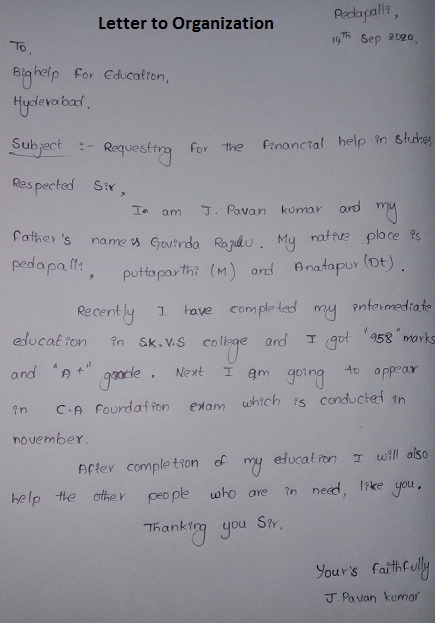 Letter to Organization
Pedapalli,
14th Sep 2020.
To,
Bighelp For Education,
Hyderabad.
Subject :- Requesting for the financial help in studies
Respected Sir,
I am J. Pavan kumar and my
father's name is Govinda Rajulu. My native place is
pedapalli, puttaparthi (M) and Anatapur (Dt).
Recently I have completed my intermediate
education in S.K.V.S college and I got "958" marks
and "A+" grade. Next I am going to appear
in C.A Foundation exam which is conducted in
november.
After completion of my education I will also
help the other people who are in need, like you.
Thanking you Sir.
Your's faithfully
J. Pavan kumar